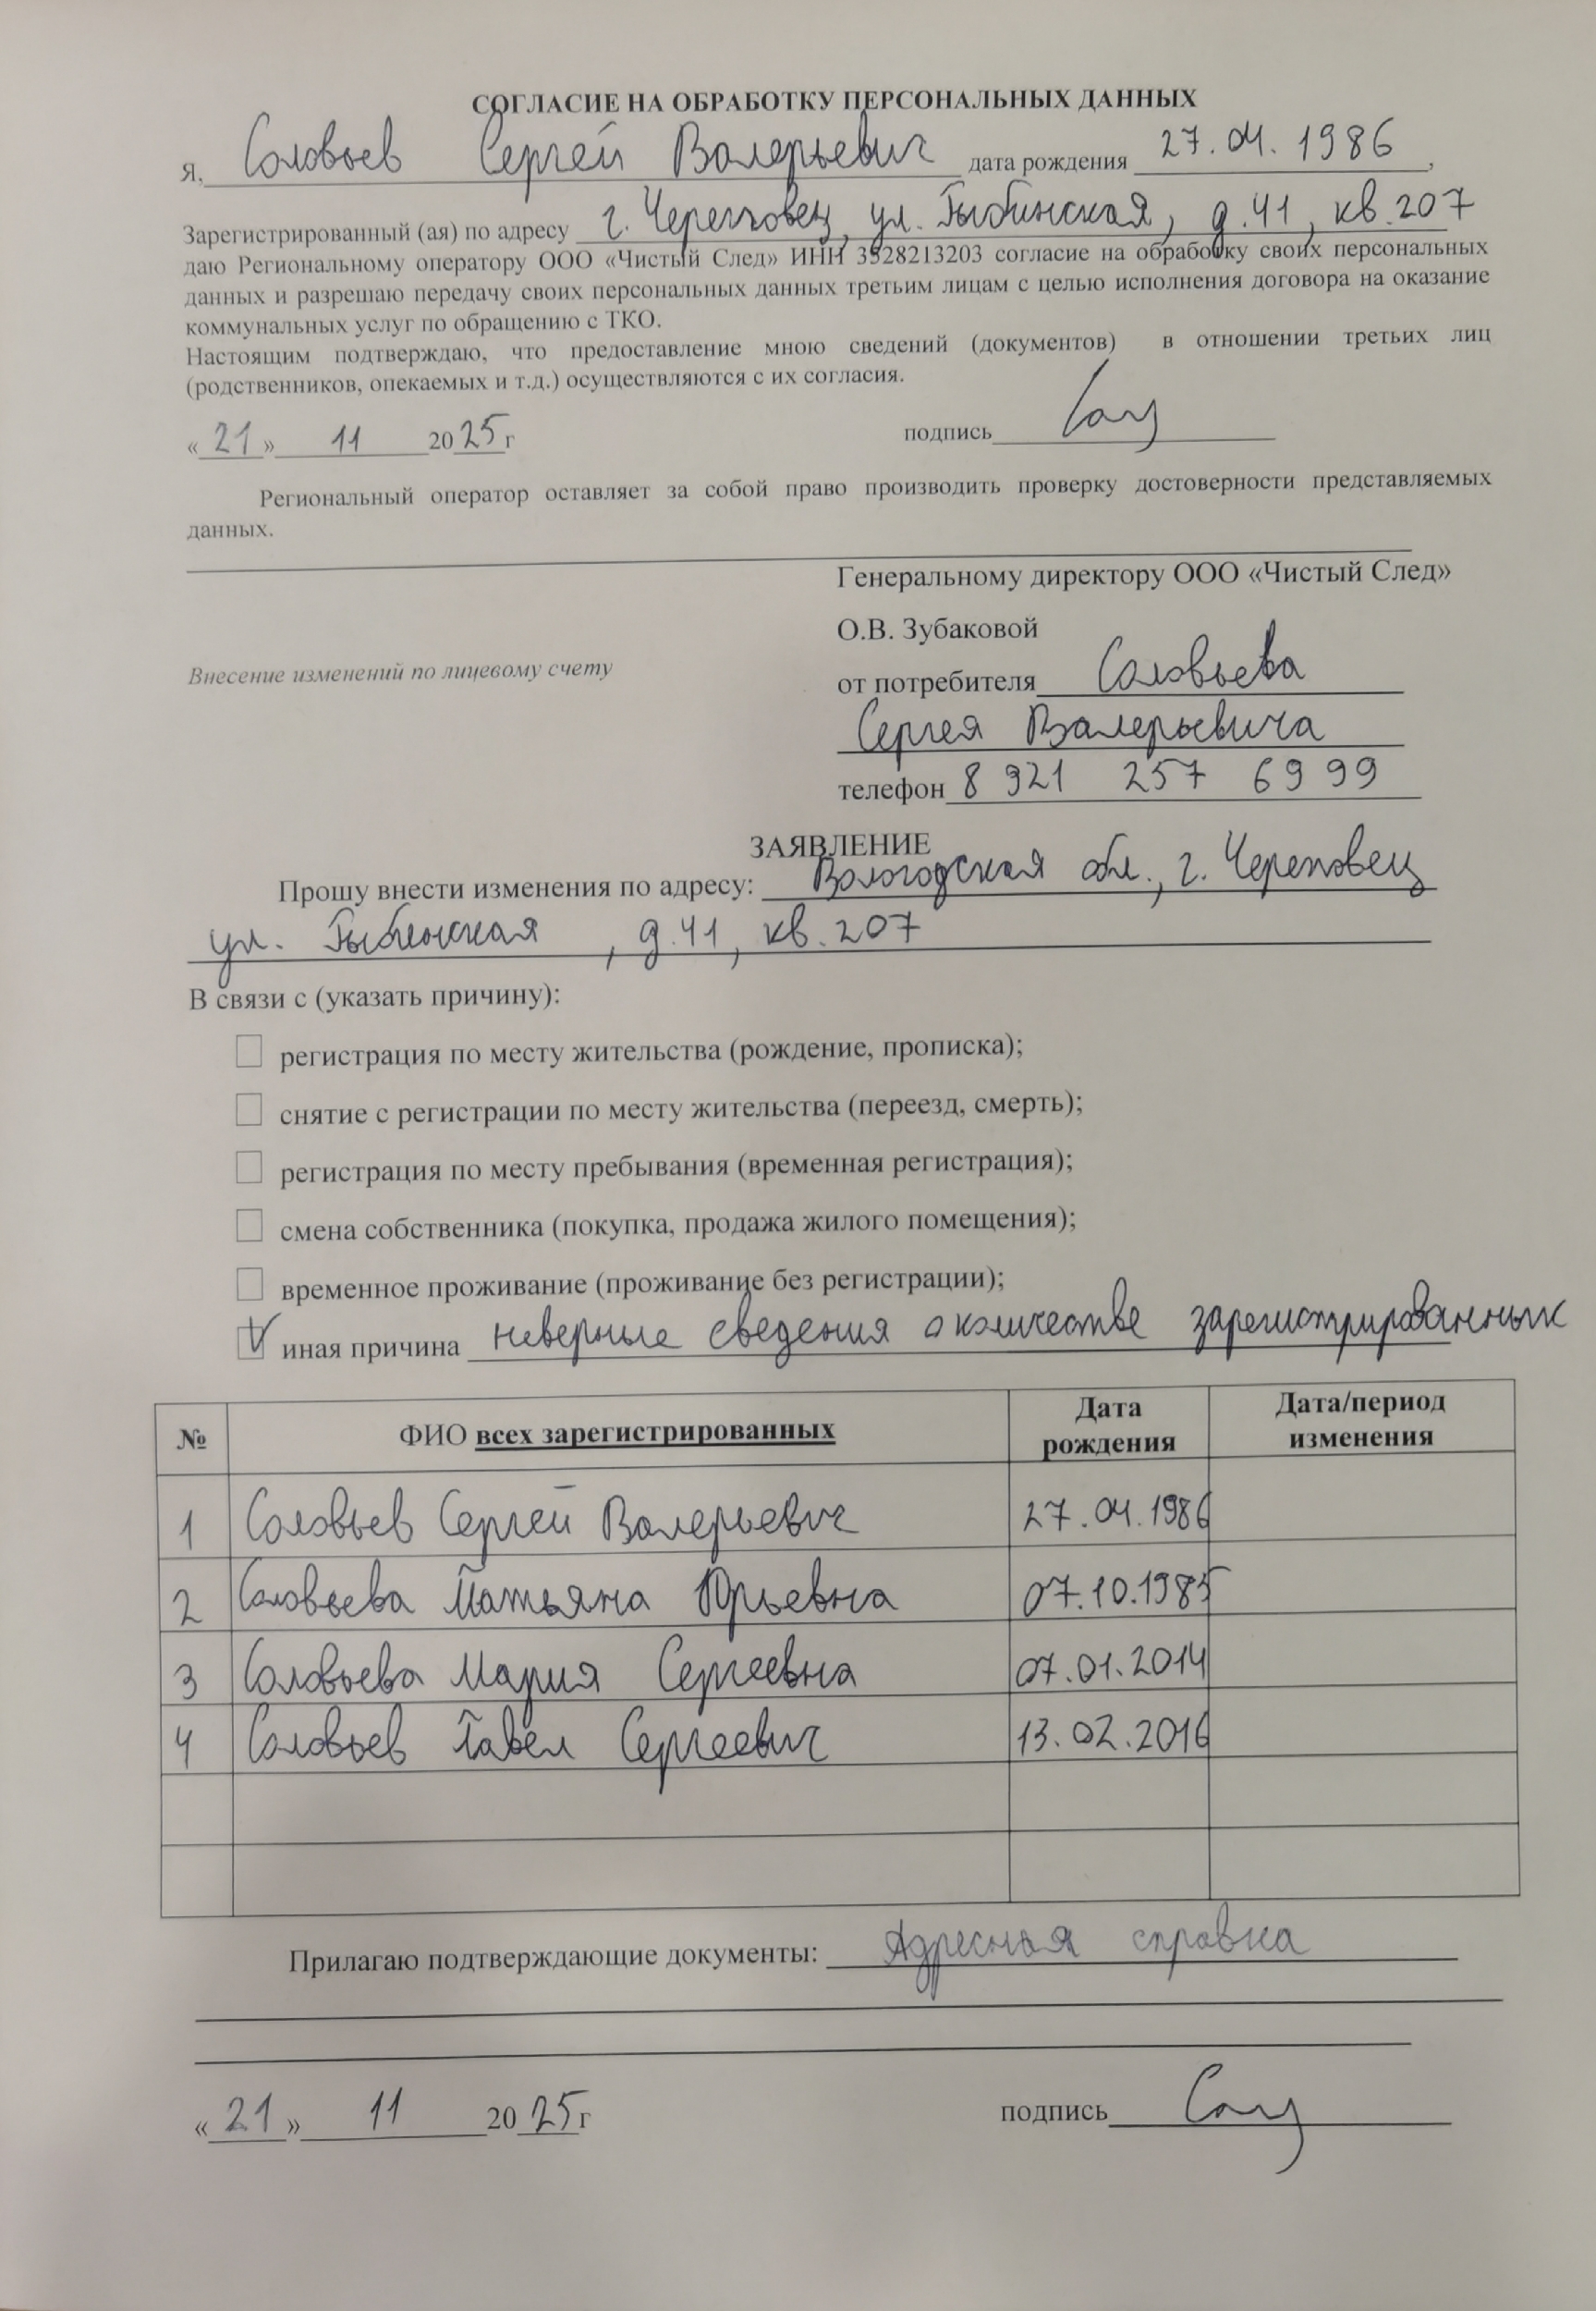 СОГЛАСИЕ НА ОБРАБОТКУ ПЕРСОНАЛЬНЫХ ДАННЫХ
Я, Соловьев Сергей Валерьевич дата рождения 27.04.1986,
Зарегистрированный (ая) по адресу г. Череповец, ул. Рыбинская, д.41, кв.207
даю Региональному оператору ООО «Чистый След» ИНН 3528213203 согласие на обработку своих персональных
данных и разрешаю передачу своих персональных данных третьим лицам с целью исполнения договора на оказание
коммунальных услуг по обращению с ТКО.
Настоящим подтверждаю, что предоставление мною сведений (документов) в отношении третьих лиц
(родственников, опекаемых и т.д.) осуществляются с их согласия.
«21» 11 2025г подпись
Региональный оператор оставляет за собой право производить проверку достоверности представляемых
данных.
Генеральному директору ООО «Чистый След»
О.В. Зубаковой
Внесение изменений по лицевому счету
от потребителя Соловьева
Сергея Валерьевича
телефон 8 921 257 69 99
ЗАЯВЛЕНИЕ
Прошу внести изменения по адресу: Вологодская обл., г. Череповец
ул. Рыбинская, д.41, кв.207
В связи с (указать причину):
регистрация по месту жительства (рождение, прописка);
снятие с регистрации по месту жительства (переезд, смерть);
регистрация по месту пребывания (временная регистрация);
смена собственника (покупка, продажа жилого помещения);
временное проживание (проживание без регистрации);
V иная причина неверные сведения о количестве зарегистрированных
№ ФИО всех зарегистрированных Дата рождения Дата/период изменения
1 Соловьев Сергей Валерьевич 27.04.1986
2 Соловьева Татьяна Юрьевна 07.10.1985
3 Соловьева Мария Сергеевна 07.01.2014
4 Соловьев Павел Сергеевич 13.02.2016
Прилагаю подтверждающие документы: Адресная справка
«21» 11 2025г подпись